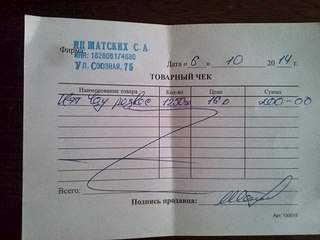 Фирма ИП ШАТСКИХ С. А.
ИНН: 162606174680
УЛ. СОЮЗНАЯ, 75
Дата « 6 » 10 2014 г.
ТОВАРНЫЙ ЧЕК
Наименование товара Кол-во Цена Сумма
200-00
Всего:
Подпись продавца: